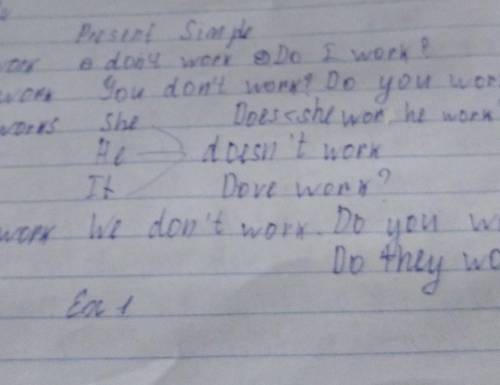 Present Simple
work ⊖ don't work Do I work?
work You don't work? Do you wor
works She Does she wor, he work
He doesn't work
It Do we work?
work We don't work. Do you w
Do they wo
Ex 1